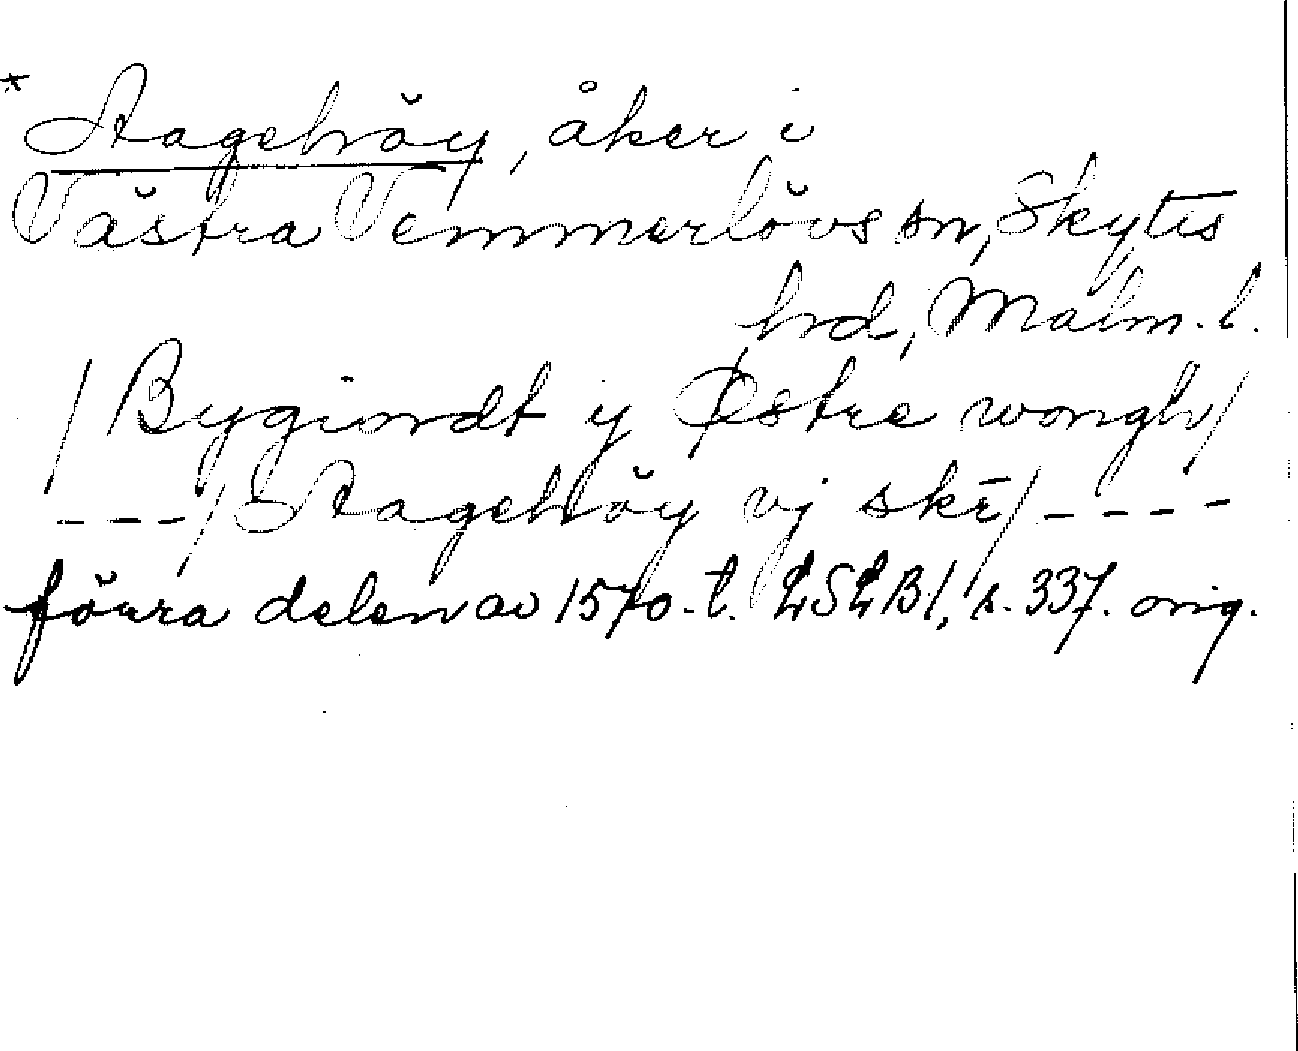 * Stagehöy, åker i
Västra Vemmerlövs sn, Skytts
hd, Malm. l.
/ Bygiordt y Østre wongh /
---/ Stagehöy vj skr̄ /----
förra delen av 1570-t. LSLB1, s. 337. orig.